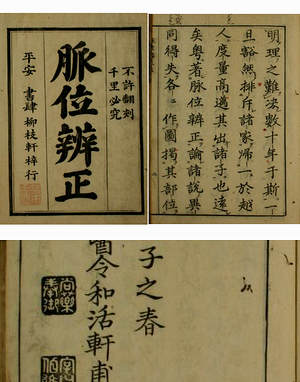 不許翻刻
千里必究
脈位辨正
平安 書肆 柳枝軒梓行
明理之難決數十年于斯一
旦豁然排斥諸家帰一於越
人度量高邁其出諸子也遠
矣粤著脈位辨正論諸説異
同得失各々作圖揭其部位
子之春
令和活軒甫
尚藥
奉御